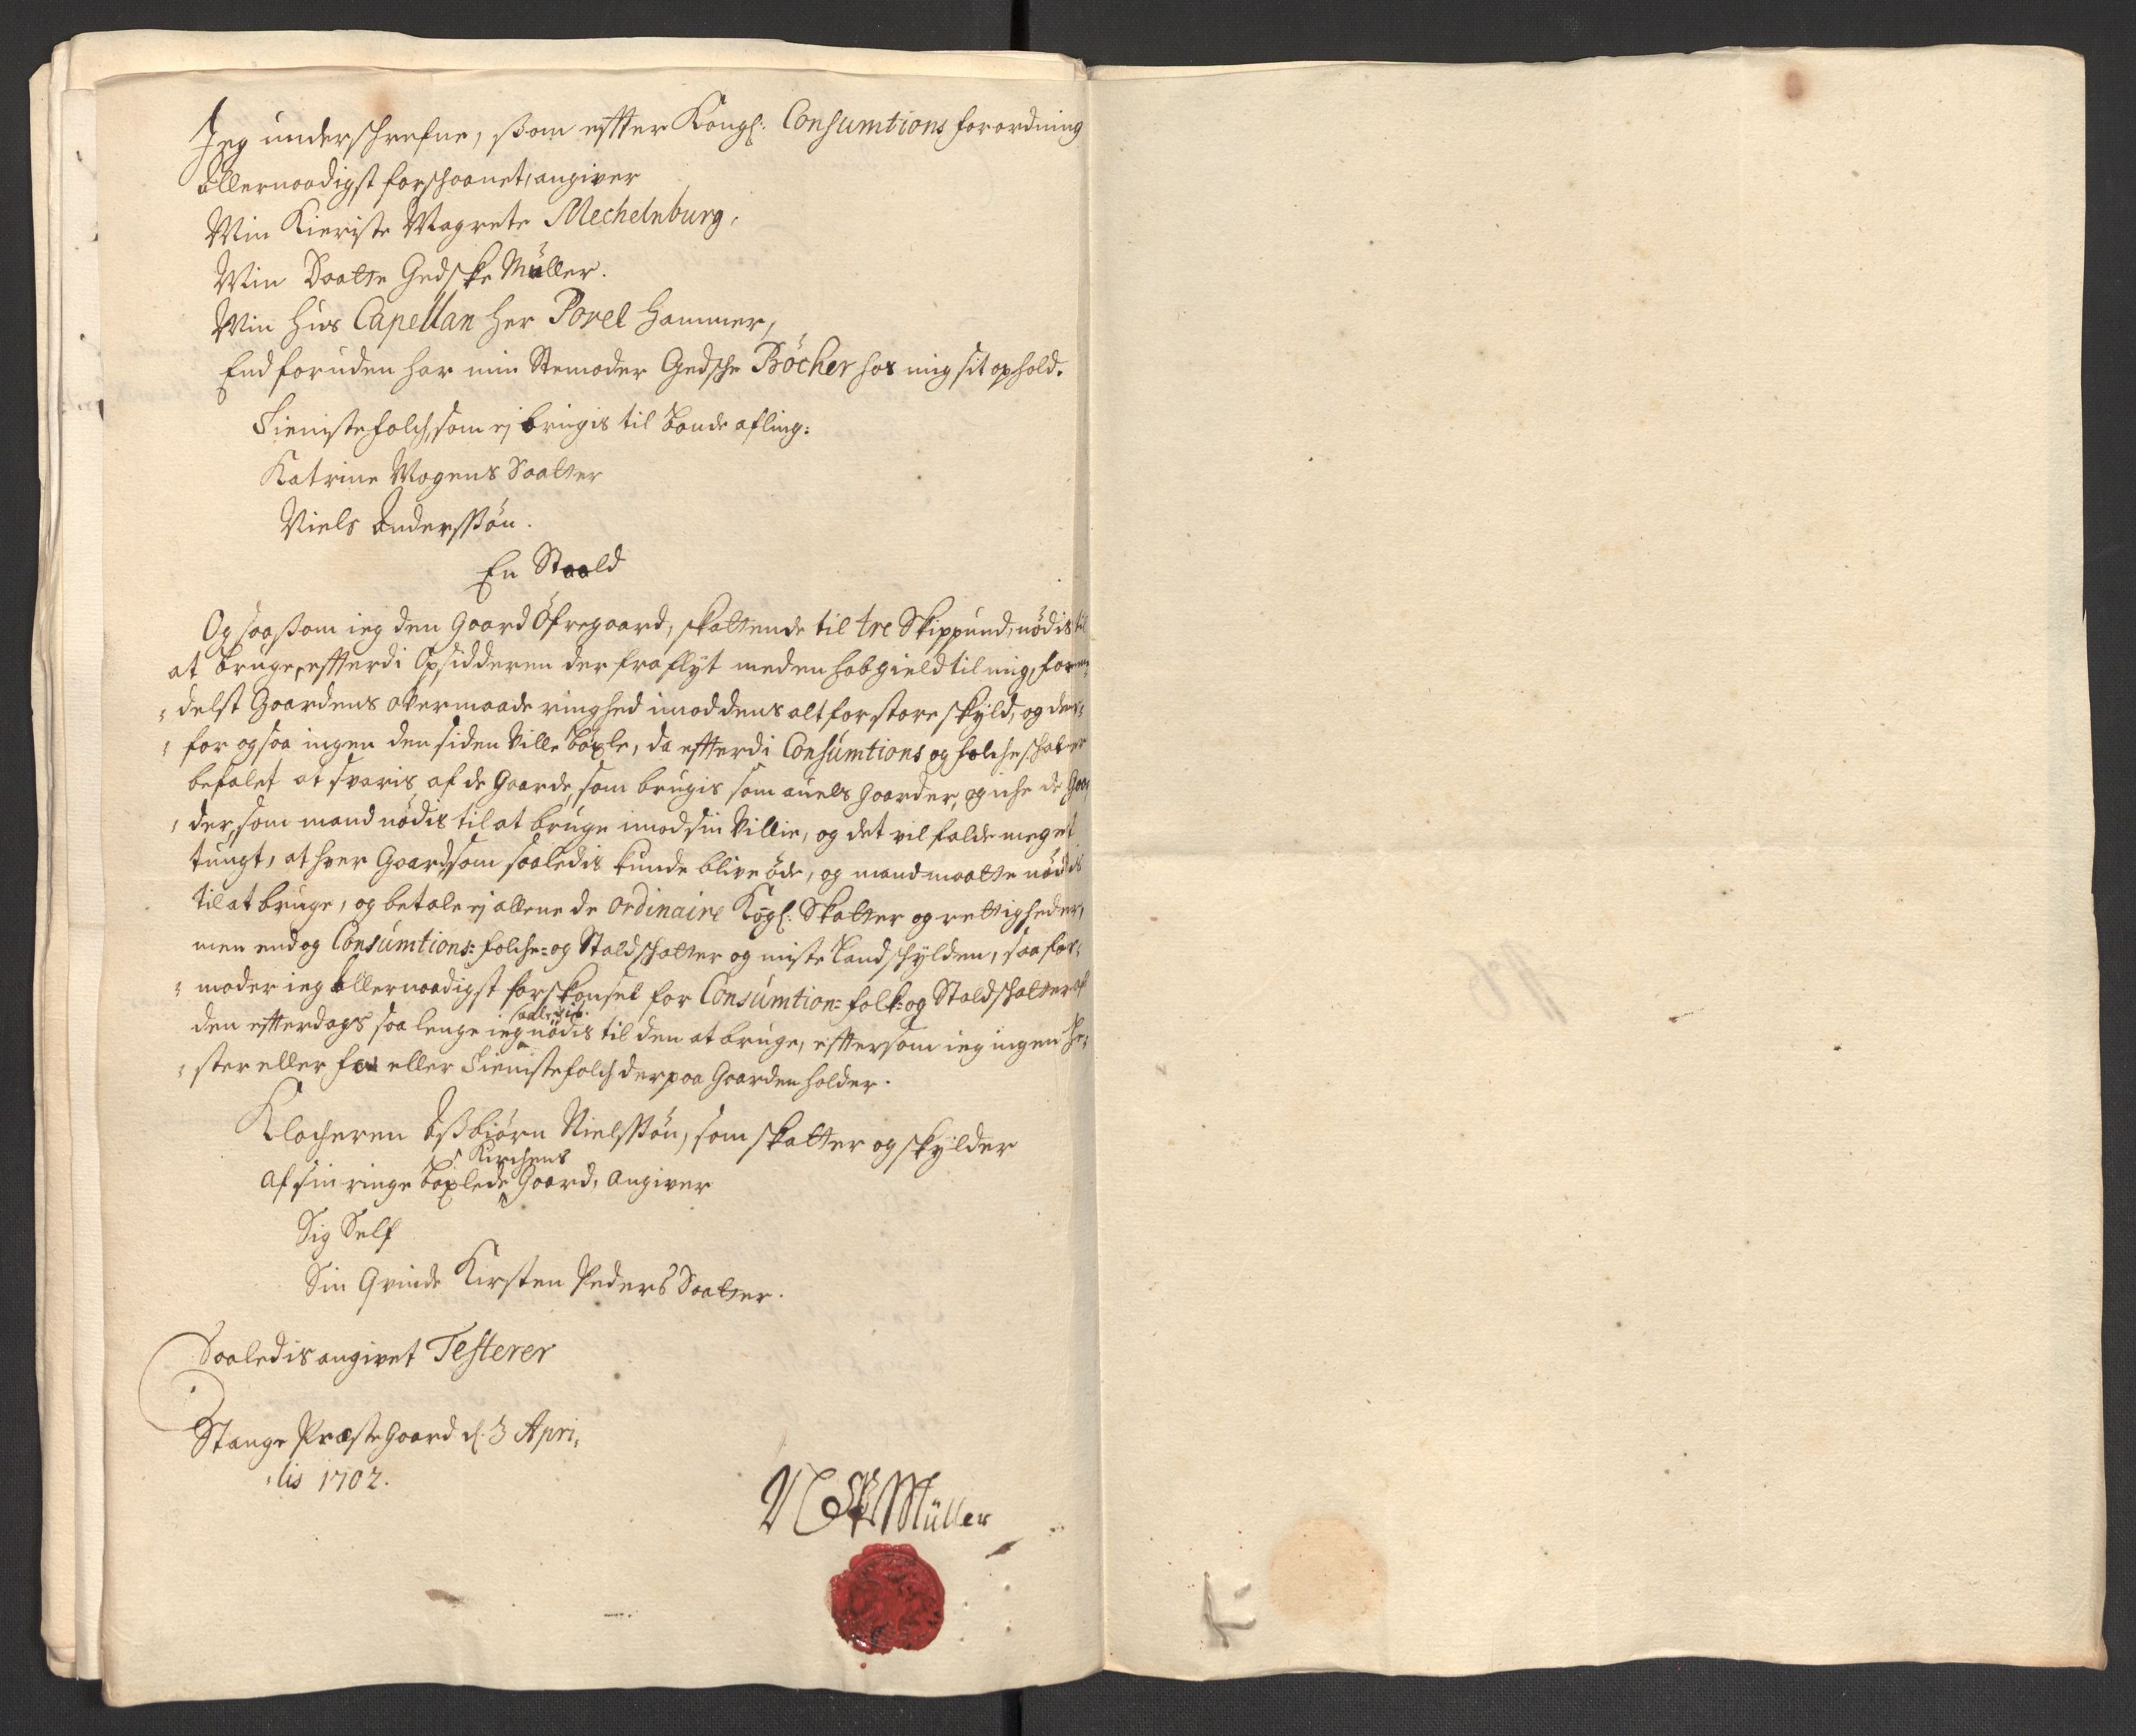 Jeg underschrefne, ßom effter Kongl: Consumtions forordning
Allernaadigst forschaanet, angiver
Min Kieriste Magrete Mechelnburg,
Min Daatte Gedske Müller.
Min Huus Capellan Her Povel Hammer,
End foruden har min Stemoder Gedsche Böcher hos mig sit ophold.
Tienistefolch, som ej brugis til bonde afling:
Katrine Mogens Daatter
Niels Anderssøn.
En Staald
Og saaßom ieg den Gaard Öfregaard, skattende til tre Skippund, nödis til
at bruge, effterdi Opsidderen der fra flyt med en hob gield til mig, for me¬
delst Gaardens overmaade ringhed imod dens alt for store skyld, og der¬
for og saa ingen den siden ville böxle, da effterdi Consumtions og folcheschat er
befalet at svaris af de Gaarde, som brugis som auels Gaarder, og iche de Gaar
der, som mand nödis til at bruge imod sin villie, og det vil falde meget
tungt, at hver Gaard, som saaledis kunde blive öde, og mand maatte nödis
til at bruge, og betale ej allene de ordinaire Kögl: Skatter og rettigheder,
men endog Consumtions= folche= og Stald schatter og miste Landschylden, saa for¬
moder ieg Allernaadigst forskonsel for Consumtion= folk= og Staldschatter af
den effterdags saa lenge ieg saaledis nödis til den at bruge, efftersom ieg ingen He¬
ster eller fæ eller Tienistefolch der paa Gaarden holder.
Klocheren Aßbiörn Nielssön, som skatter og skylder
af sin ringe böxlede Kirchens Gaard, angiver
Sig Self
Sin Qvinde Kirsten Peders Daatter.
Saaledis angivet Testerer
Stange Præste Gaard d. 3 Apri¬
lis 1702.
Müller